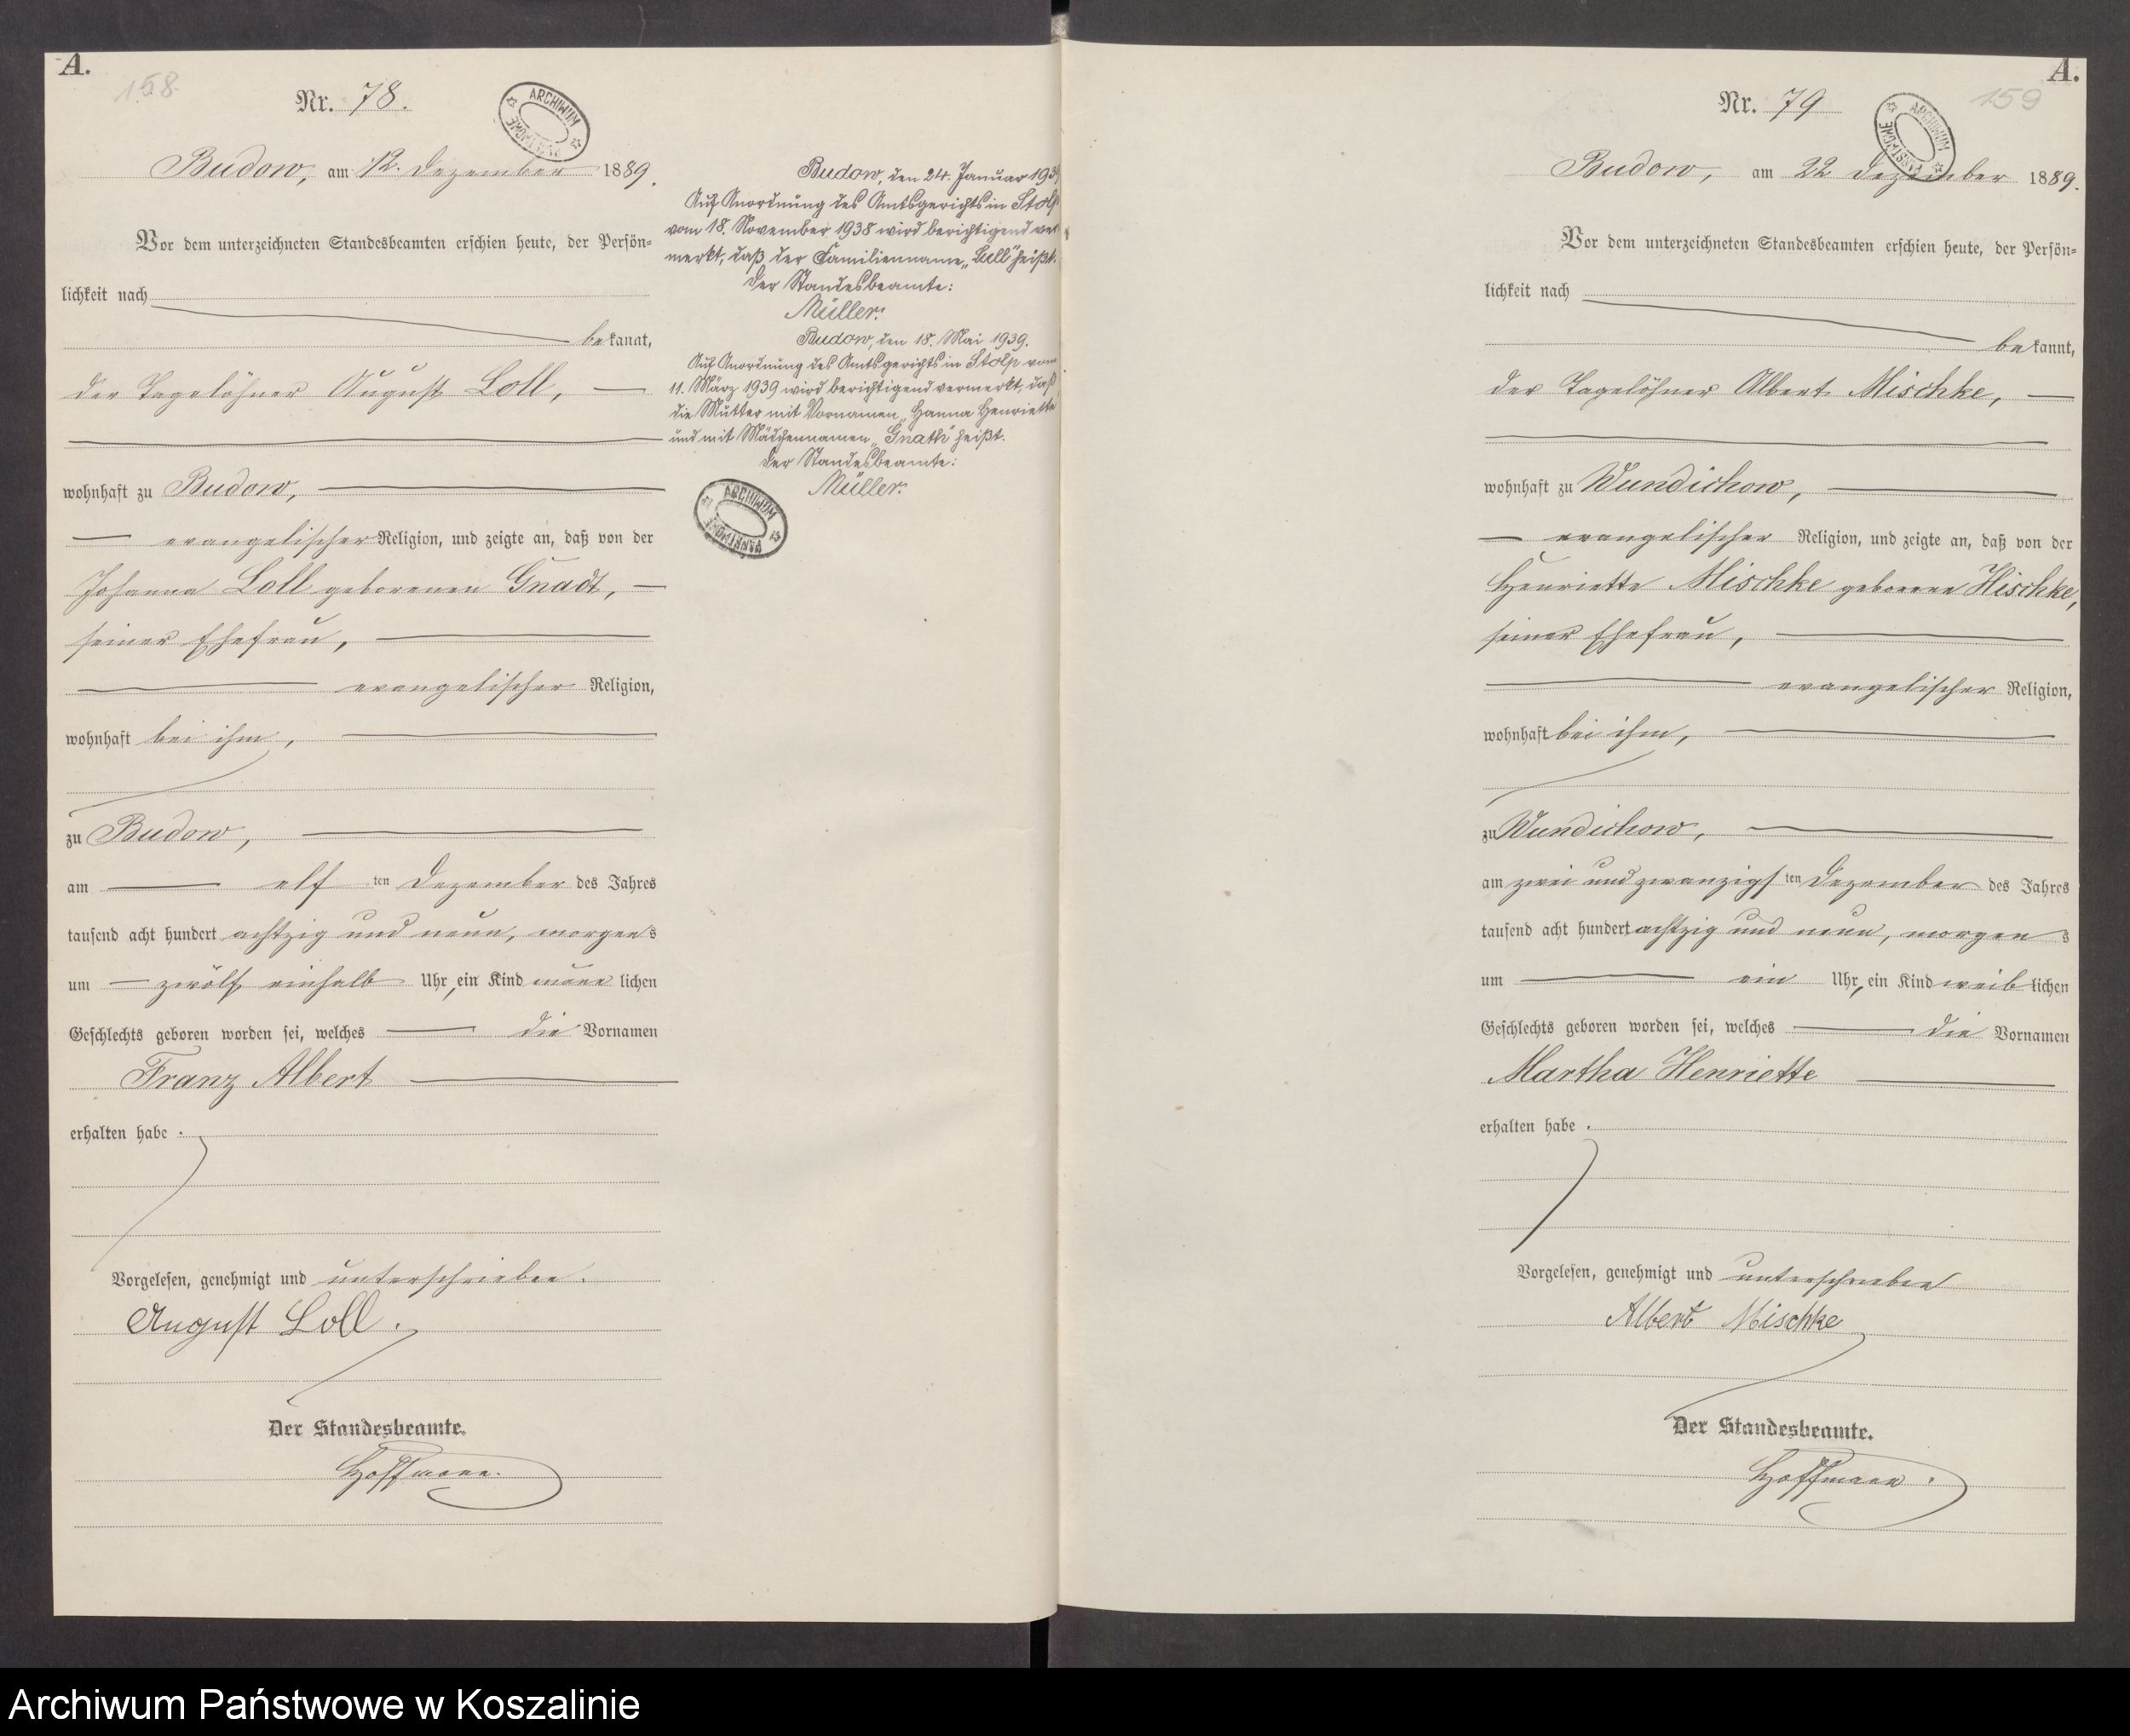 A.
158.
Nr. 78.
ARCHIWUM PAŃSTWOWE
Budow, am 12. Dezember 1889.
Vor dem unterzeichneten Standesbeamten erschien heute, der Persön-
lichkeit nach
bekannt,
der Tagelöhner August Loll,
wohnhaft zu Budow,
evangelischer Religion, und zeigte an, daß von der
Johanna Loll geborenen Gnadt,
seiner Ehefrau,
evangelischer Religion,
wohnhaft bei ihm,
zu Budow,
am elf ten Dezember des Jahres
tausend acht hundert achtzig und neun, morgens
um zwölf einhalb Uhr, ein Kind männlichen
Geschlechts geboren worden sei, welches die Vornamen
Franz Albert
erhalten habe.
Vorgelesen, genehmigt und unterschrieben.
August Loll.
Der Standesbeamte.
Hoffmann.
Budow, den 24. Januar 1939
Auf Anordnung des Amtsgerichts in Stolp
vom 18. November 1938 wird berichtigend ver
merkt, daß der Familienname „Lull" heißt.
Der Standesbeamte:
Müller.
Budow, den 18. Mai 1939.
Auf Anordnung des Amtsgerichts in Stolp vom
11. März 1939 wird berichtigend vermerkt, daß
die Mutter mit Vornamen „Hanna Henriette
und mit Mädchennamen „Gnath" heißt.
Der Standesbeamte:
Müller.
ARCHIWUM PAŃSTWOWE
A.
159
Nr. 79
ARCHIWUM PAŃSTWOWE
Budow, am 22 Dezember 1889.
Vor dem unterzeichneten Standesbeamten erschien heute, der Persön-
lichkeit nach
bekannt,
der Tagelöhner Albert Mischke,
wohnhaft zu Wundichow,
evangelischer Religion, und zeigte an, daß von der
Henriette Mischke geborene Hischke,
seiner Ehefrau,
evangelischer Religion,
wohnhaft bei ihm,
zu Wundichow,
am zwei und zwanzigsten Dezember des Jahres
tausend acht hundert achtzig und neun, morgens
um ein Uhr, ein Kind weiblichen
Geschlechts geboren worden sei, welches die Vornamen
Martha Henriette
erhalten habe.
Vorgelesen, genehmigt und unterschrieben
Albert Mischke
Der Standesbeamte.
Hoffmann.
Archiwum Państwowe w Koszalinie